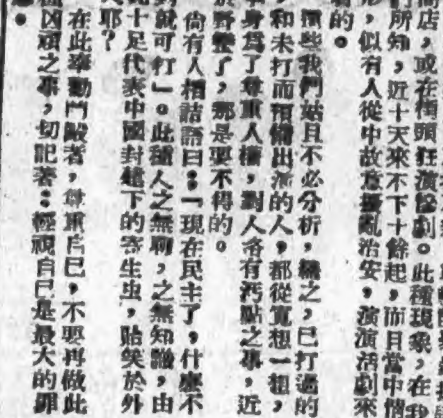 商店，或在街頭狂演怪劇。此種現象，在我
們所知，近十天來不下十餘起，而且當中情
形，似有人從中故意擾亂治安，演演活劇來
的。
些我們姑且不必分析，總之，已打過的
和未打而預備出演的人，都從寬想一想，
身爲了尊重人權，對人格有污點之事，近
於野蠻了，那是要不得的。
尚有人相詰語曰：「現在民主了，什麼不
對就可打」。此種人之無聊，之無知識，由
此十足代表中國封建下的寄生虫，貽笑於外
人耶？
在此舉動鬥毆者，尊重自己，不要再做此
種凶頑之事，切記著：輕視自己是最大的罪
。